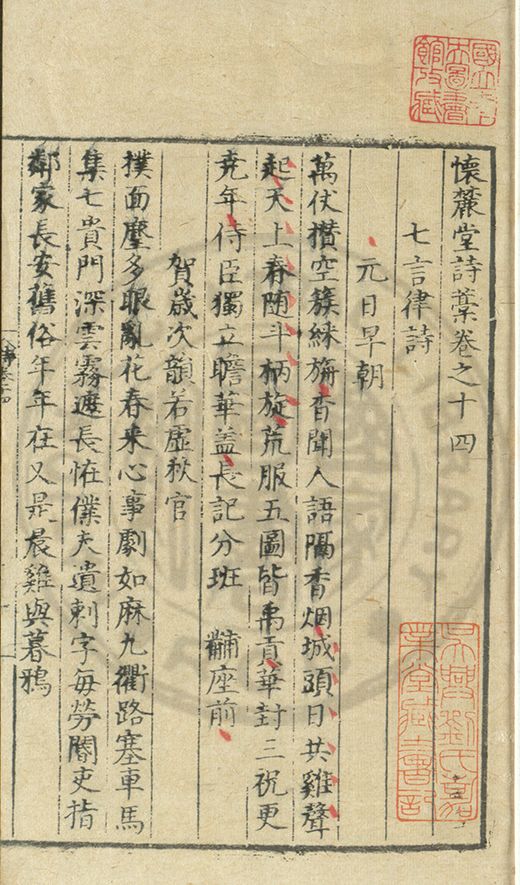 國立中
央圖書
館收藏
懷麓堂詩藁卷之十四
七言律詩
元日早朝
萬仗攅空簇綵旃杳聞人語隔香烟城頭日共雞聲
起天上春随斗柄旋荒服五圖皆禹貢華封三祝更
尭年侍臣獨立瞻華盖長記分班黼座前
賀歲次韻若虛秋官
撲面塵多眼亂花春来心事劇如麻九衢路塞車馬
集七貴門深雲霧遮長恠僕夫遺刺字毎勞閽吏指
鄰家長安舊俗年年在又是晨雞與暮鴉
吳興劉氏嘉
業堂藏書記